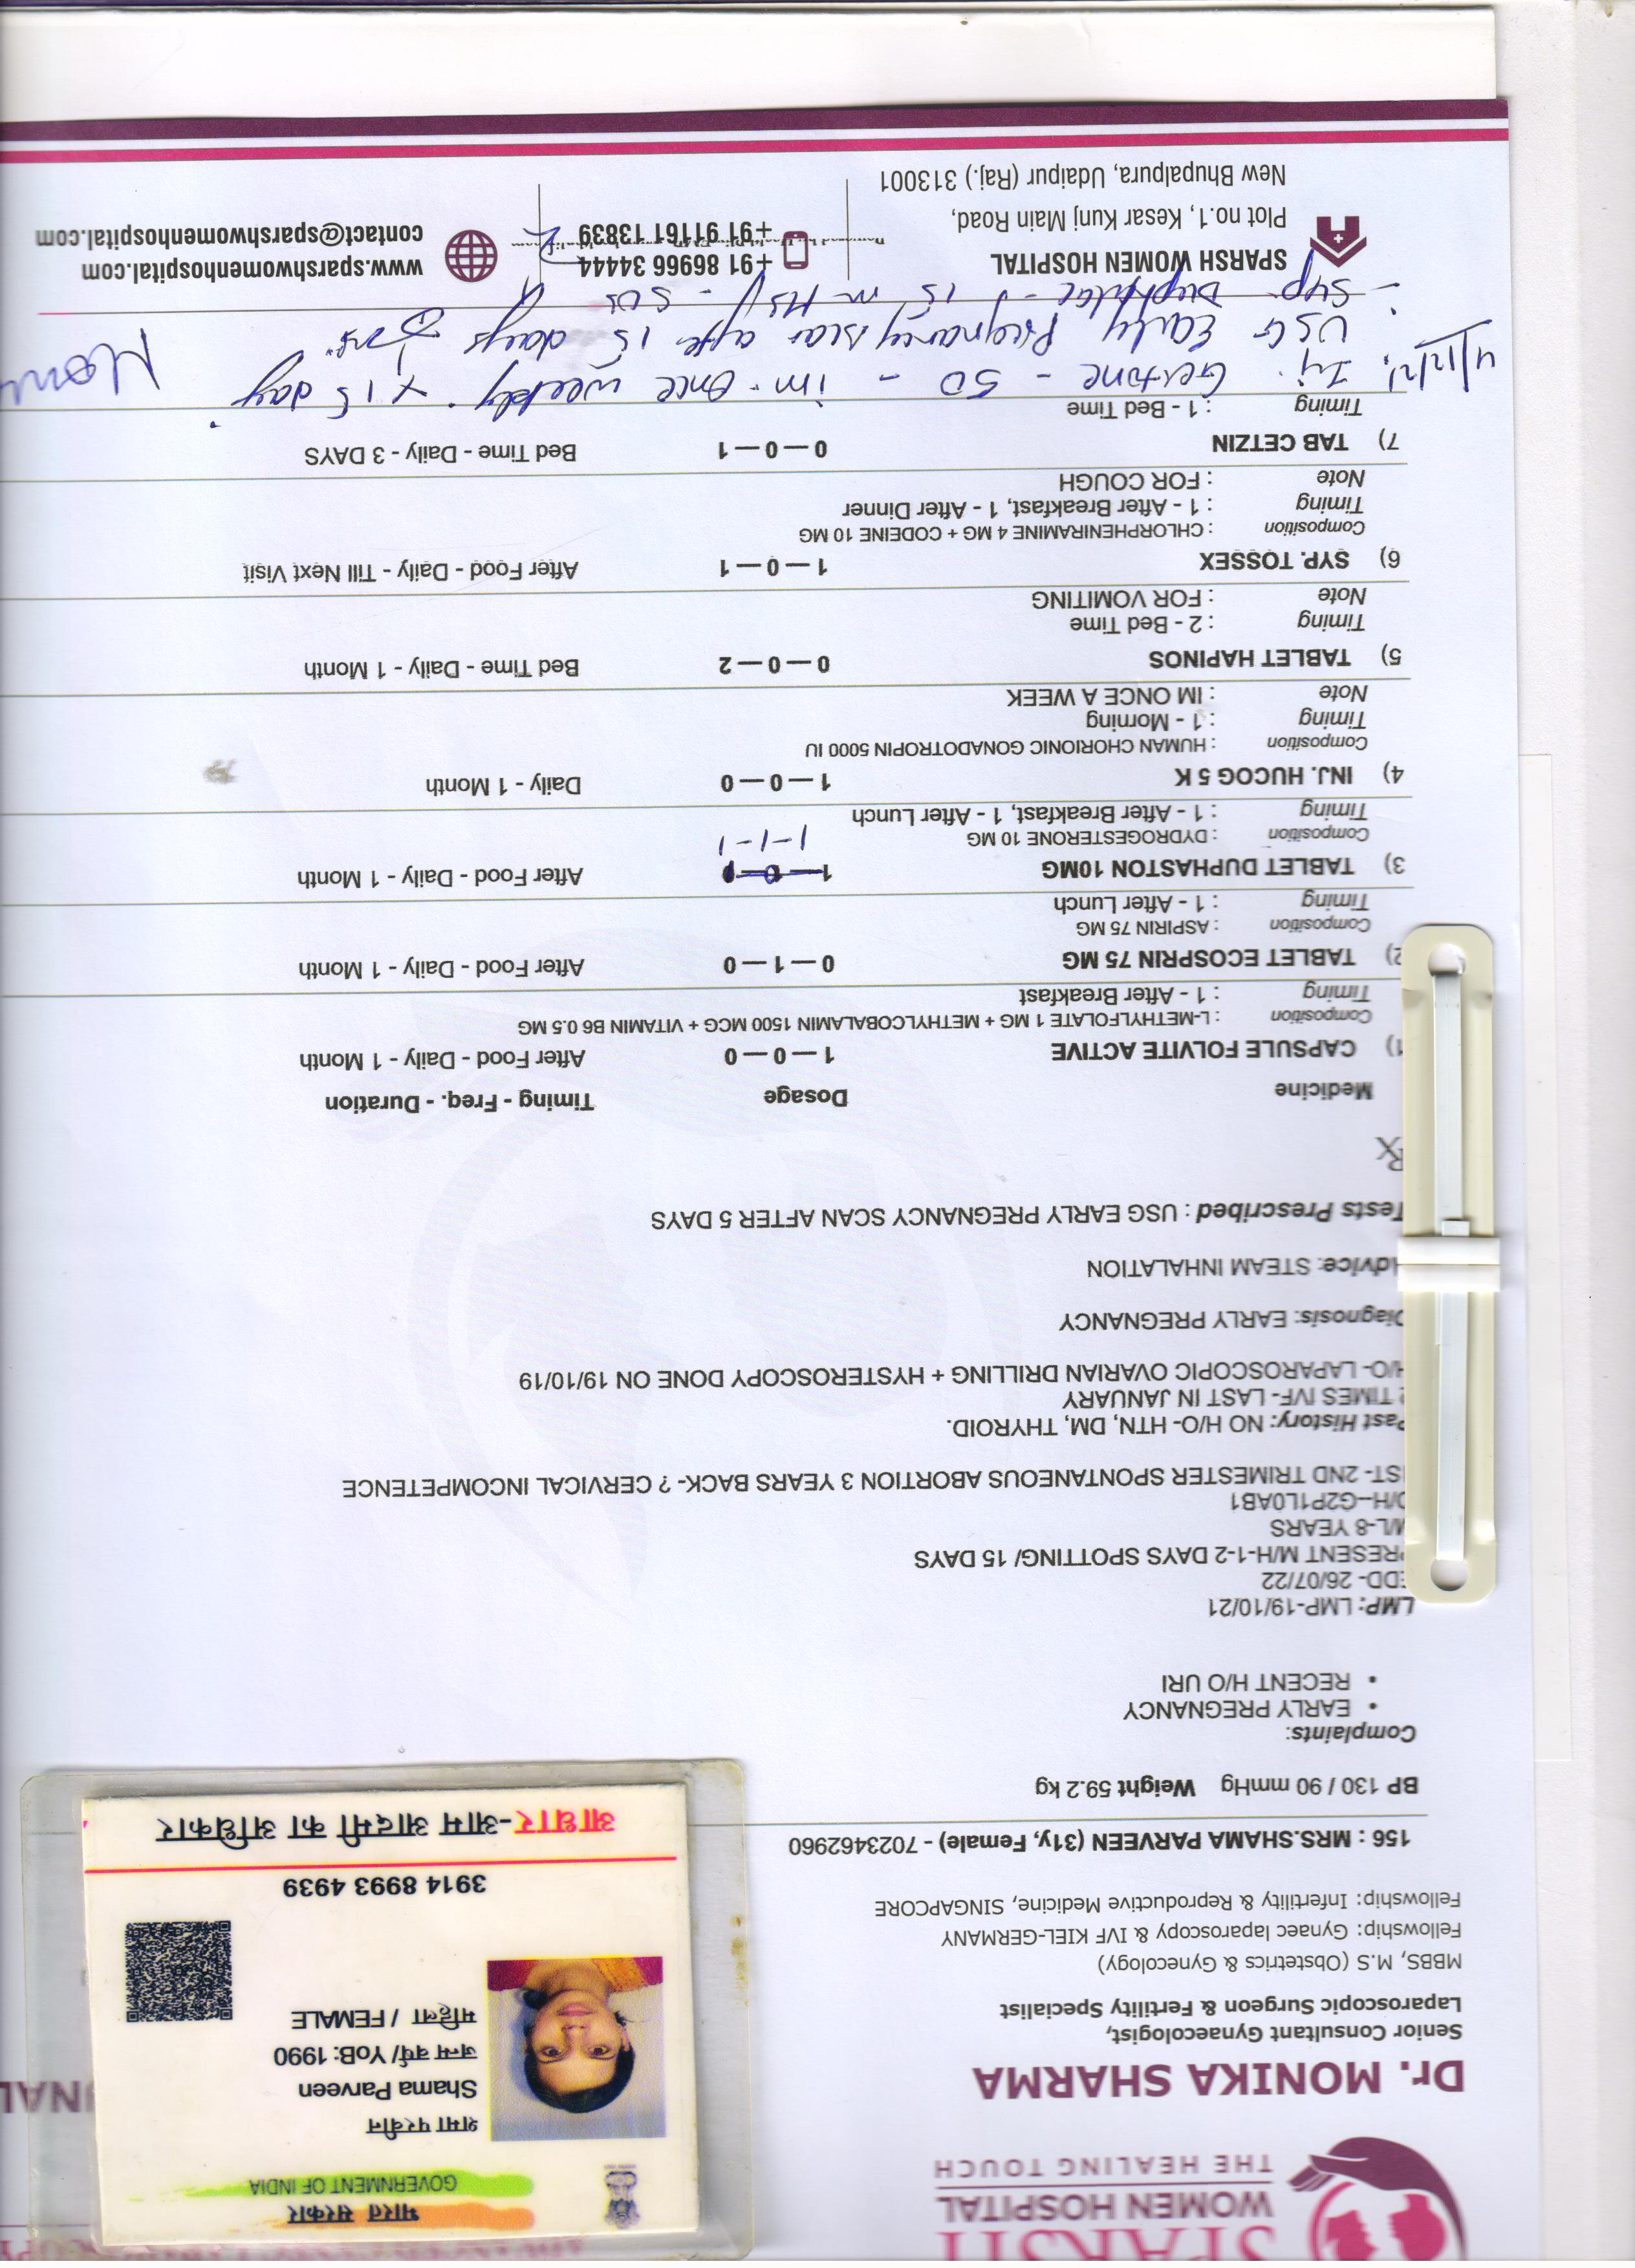 SPARSH
WOMEN HOSPITAL
THE HEALING TOUCH
Dr. MONIKA SHARMA
Senior Consultant Gynaecologist,
Laparoscopic Surgeon & Fertility Specialist
MBBS, M.S (Obstetrics & Gynecology)
Fellowship: Gynaec laparoscopy & IVF KIEL-GERMANY
Fellowship: Infertility & Reproductive Medicine, SINGAPCORE
भारत सरकार
GOVERNMENT OF INDIA
शमा परवीन
Shama Parveen
जन्म वर्ष / YoB: 1990
महिला / FEMALE
3914 8993 4939
आधार-आम आदमी का अधिकार
156 : MRS.SHAMA PARVEEN (31y, Female) - 7023462960
BP 130 / 90 mmHg Weight 59.2 kg
Complaints:
• EARLY PREGNANCY
• RECENT H/O URI
LMP: LMP-19/10/21
EDD- 26/07/22
PRESENT M/H-1-2 DAYS SPOTTING/ 15 DAYS
M/L-8 YEARS
O/H--G2P1L0AB1
IST- 2ND TRIMESTER SPONTANEOUS ABORTION 3 YEARS BACK- ? CERVICAL INCOMPETENCE
Past History: NO H/O- HTN, DM, THYROID.
TIMES IVF- LAST IN JANUARY
H/O- LAPAROSCOPIC OVARIAN DRILLING + HYSTEROSCOPY DONE ON 19/10/19
Diagnosis: EARLY PREGNANCY
Advice: STEAM INHALATION
Tests Prescribed : USG EARLY PREGNANCY SCAN AFTER 5 DAYS
Rx
Medicine Dosage Timing - Freq. - Duration
1) CAPSULE FOLVITE ACTIVE 1 — 0 — 0 After Food - Daily - 1 Month
Composition : L-METHYLFOLATE 1 MG + METHYLCOBALAMIN 1500 MCG + VITAMIN B6 0.5 MG
Timing : 1 - After Breakfast
2) TABLET ECOSPRIN 75 MG 0 — 1 — 0 After Food - Daily - 1 Month
Composition : ASPIRIN 75 MG
Timing : 1 - After Lunch
3) TABLET DUPHASTON 10MG 1 — 0 — 1 After Food - Daily - 1 Month
Composition : DYDROGESTERONE 10 MG 1-1-1
Timing : 1 - After Breakfast, 1 - After Lunch
4) INJ. HUCOG 5 K 1 — 0 — 0 Daily - 1 Month
Composition : HUMAN CHORIONIC GONADOTROPIN 5000 IU
Timing : 1 - Morning
Note : IM ONCE A WEEK
5) TABLET HAPINOS 0 — 0 — 2 Bed Time - Daily - 1 Month
Timing : 2 - Bed Time
Note : FOR VOMITING
6) SYP. TOSSEX 1 — 0 — 1 After Food - Daily - Till Next Visit
Composition : CHLORPHENIRAMINE 4 MG + CODEINE 10 MG
Timing : 1 - After Breakfast, 1 - After Dinner
Note : FOR COUGH
7) TAB CETZIN 0 — 0 — 1 Bed Time - Daily - 3 DAYS
Timing : 1 - Bed Time
4/12/21 Inj. Gestone - 50 - im - Once weekly x 15 day
USG Early Pregnancy scan after 15 days
- Syp. Duphalac - 15 m HS - SOS
SPARSH WOMEN HOSPITAL
Plot no.1, Kesar Kunj Main Road,
New Bhupalpura, Udaipur (Raj.) 313001
+91 86966 34444
+91 91161 13839
www.sparshwomenhospital.com
contact@sparshwomenhospital.com